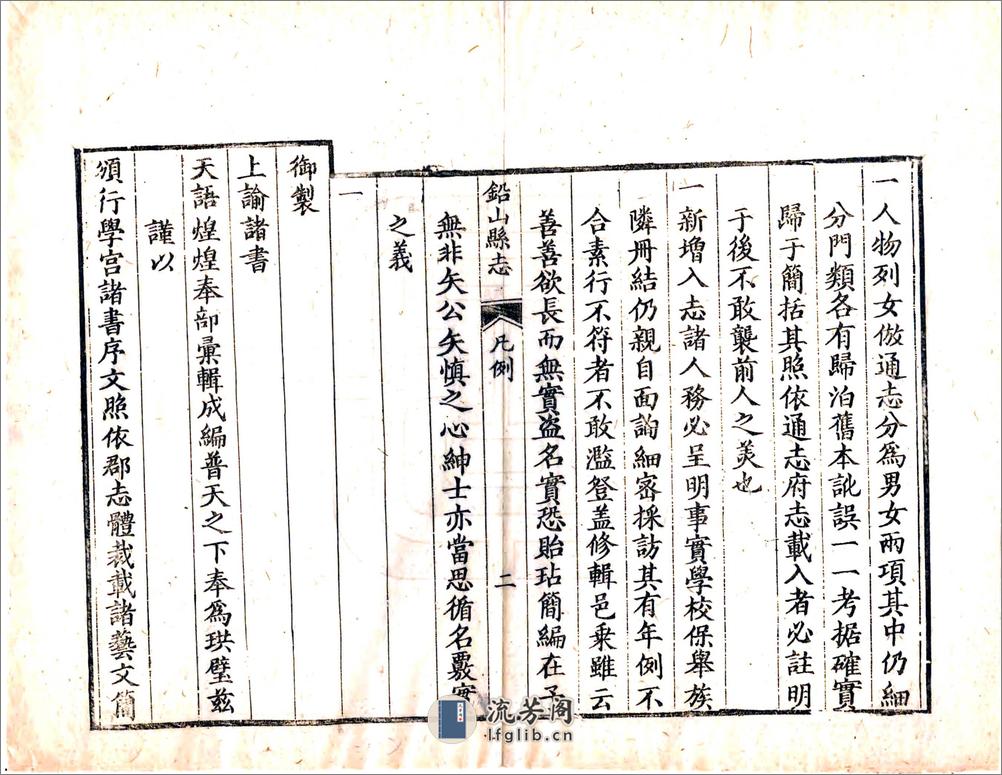 一人物列女倣通志分爲男女兩項其中仍細
分門類各有歸泊舊本訛誤一一考据確實
歸于簡括其照依通志府志載入者必註明
于後不敢襲前人之美也
一新增入志諸人務必呈明事實學校保舉族
隣冊結仍親自面詢細密採訪其有年例不
合素行不符者不敢濫登盖修輯邑乘雖云
善善欲長而無實盗名實恐貽玷簡編在予
鉛山縣志 凡例 二
無非矢公矢慎之心紳士亦當思循名覈實
之義
一
御製
上諭諸書
天語煌煌奉部彙輯成編普天之下奉爲珙璧兹
謹以
頒行學宫諸書序文照依郡志體裁載諸藝文簡
流芳阁
lfglib.cn